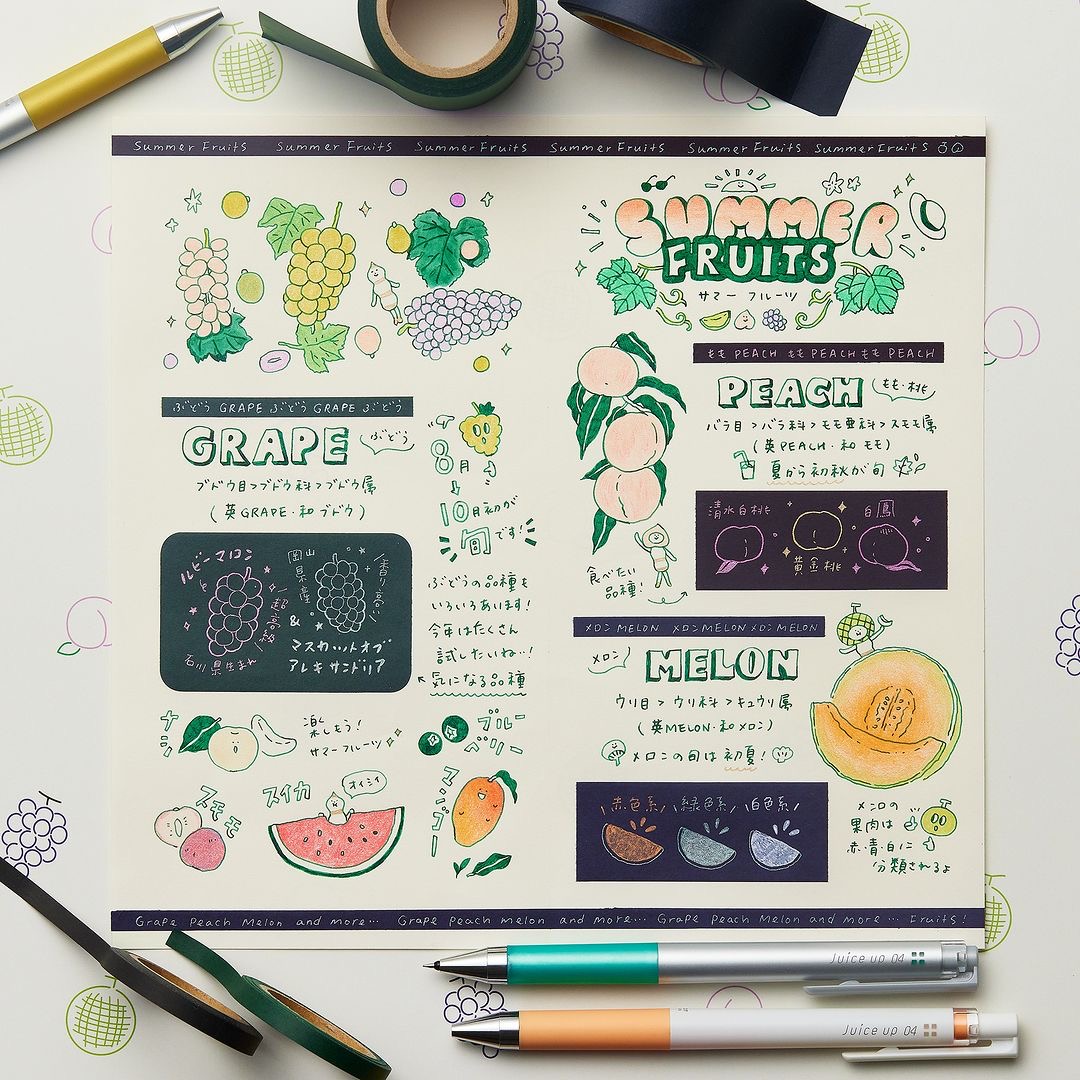 Summer Fruits Summer Fruits Summer Fruits Summer Fruits Summer Fruits Summer Fruits
ぶどう GRAPE ぶどう GRAPE ぶどう
GRAPE
ぶどう
ブドウ目>ブドウ科>ブドウ属
(英GRAPE・和ブドウ)
8月
10月初が
旬です!
ルビーロマン
超高級
石川県生まれ
&
岡山県産
香り高い
マスカットオブ
アレキサンドリア
ぶどうの品種も
いろいろあります!
今年はたくさん
試したいね…!
気になる品種
ナシ
楽しもう!
サマーフルーツ
ブルーベリー
スモモ
スイカ
オイシイ
マンゴー
SUMMER
FRUITS
サマーフルーツ
もも PEACH もも PEACH もも PEACH
PEACH
もも・桃
バラ目>バラ科>モモ亜科>スモモ属
(英PEACH・和モモ)
夏から初秋が旬
清水白桃
黄金桃
白鳳
食べたい
品種!
メロン MELON メロン MELON メロン MELON
メロン
MELON
ウリ目>ウリ科>キュウリ属
(英MELON・和メロン)
メロンの旬は初夏!
赤色系 緑色系 白色系
メロンの
果肉は
赤・青・白に
分類されるよ
Grape Peach Melon and more… Grape Peach melon and more… Grape Peach Melon and more… Fruits!
Juice up 04
Juice up 04